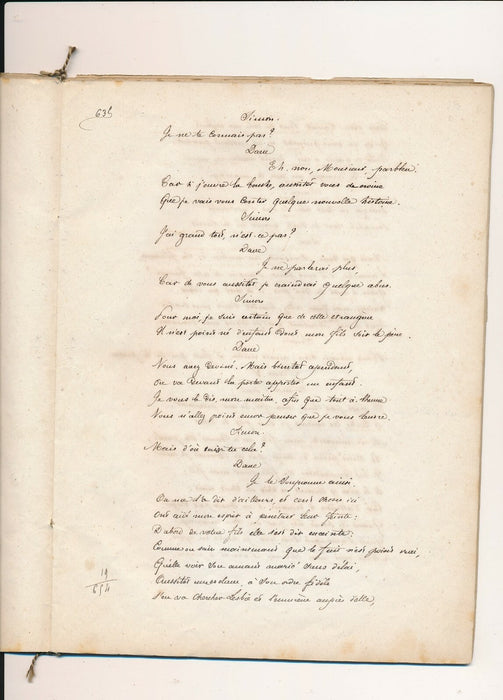 635
Simon.
Je ne te connais pas?
Dave
Eh, non, Monsieur, parbleu!
Car si j'ouvre la bouche, aussitôt vous
Que je vais vous conter quelque nouvelle histoire.
Simon
J'ai grand tort, n'est-ce pas?
Dave
Je ne parlerai plus,
Car de vous aussitôt je craindrais quelque abus.
Simon
Pour moi, je suis certain que de cette étrangère
Il n'est point né d'enfant dont mon fils soit le père.
Dave
Vous avez deviné. Mais bientôt cependant,
On va devant la porte apporter un enfant.
Je vous le dis, mon maître, afin que tout à l'heure
Vous n'alliez point encor penser que je vous leurre.
Simon.
Mais d'où sais-tu cela?
Dave
Je le soupçonne ainsi.
On me l'a dit d'ailleurs, et cent choses ici
Ont aidé mon esprit à pénétrer leur feinte:
D'abord de votre fils elle s'est dit enceinte:
Comme on sait maintenant que le fait n'est point vrai,
Qu'elle voit son amant marié sans délai,
Aussitôt une esclave, à son ordre fidèle
S'en va chercher Lesbie et l'emmène auprès d'elle,
19
654